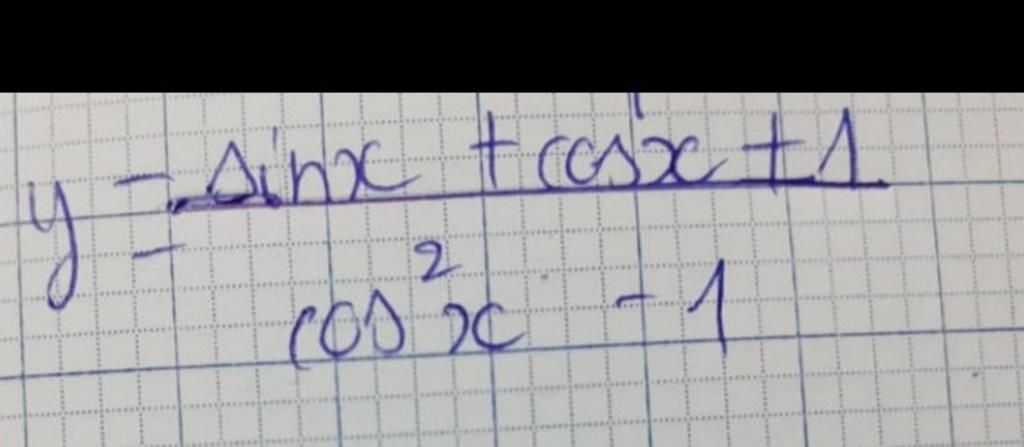 y = sinx + cosx + 1
cos²x - 1